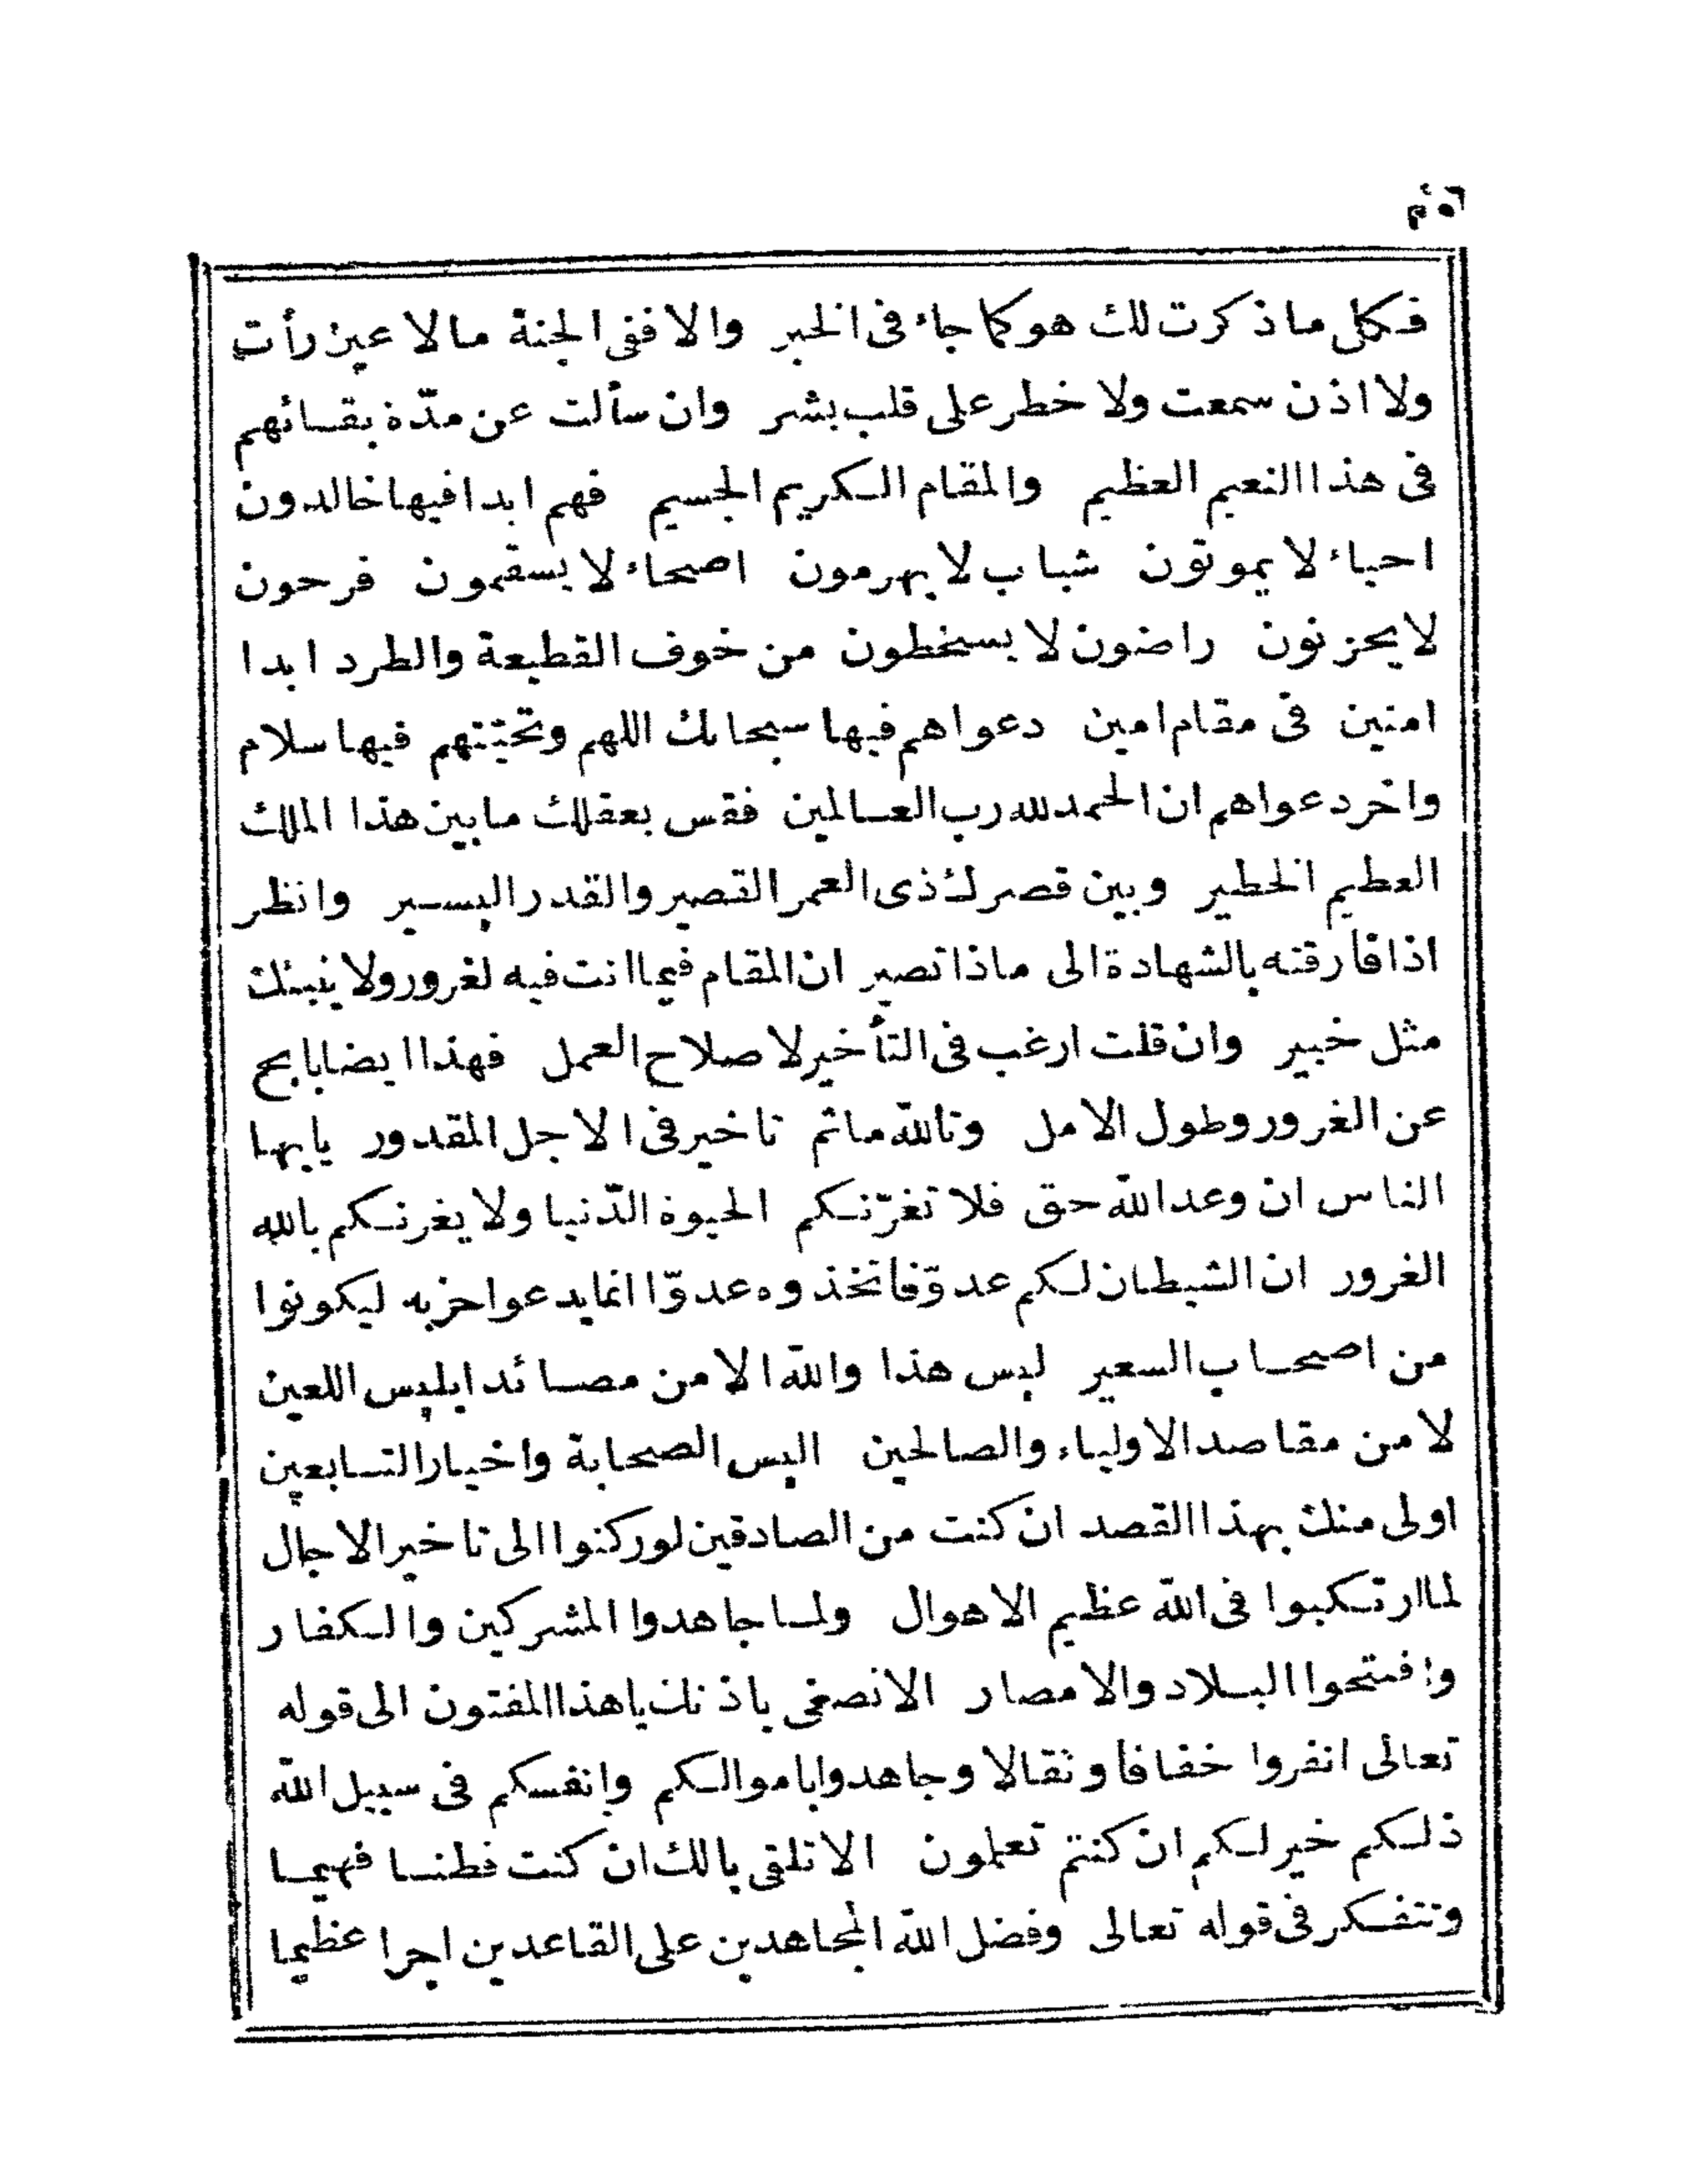 فكل ما ذكرت لك هو كما جاء فى الخبر والا ففى الجنة مالا عين رأت
ولا اذن سمعت ولا خطر على قلب بشر وان سألت عن مدّة بقائهم
فى هذا النعيم العظيم والمقام الكريم الجسيم فهم ابدا فيها خالدون
احياء لا يموتون شباب لا يهرمون اصحاء لا يسقمون فرحون
لا يحزنون راضون لا يسخطون من خوف القطيعة والطرد ابدا
امنين فى مقام امين دعواهم فيها سبحانك اللهم وتحيّتهم فيها سلام
واخر دعواهم ان الحمد لله رب العالمين فقس بعقلك ما بين هذا الملك
العطيم الخطير وبين قصرك ذى العمر القصير والقدر اليسير وانظر
اذا فارقته بالشهادة الى ماذا تصير ان المقام فيما انت فيه لغرور ولا ينبئك
مثل خبير وان قلت ارغب فى التأخير لا صلاح العمل فهذا ايضا
عن الغرور وطول الامل وتاللّه ماثم تاخير فى الاجل المقدور يايها
الناس ان وعد اللّه حق فلا تغرّنكم الحيوة الدّنيا ولا يغرنكم بالله
الغرور ان الشيطان لكم عدوّ فاتخذوه عدوّا انما يدعوا حزبه ليكونوا
من اصحاب السعير ليس هذا واللّه الا من مصائد ابليس اللعين
لا من مقاصد الاولياء والصالحين اليس الصحابة واخيار التابعين
اولى منك بهذا القصد ان كنت من الصادقين لو ركنوا الى تاخير الاجال
لما ارتكبوا فى اللّه عظيم الاهوال ولما جاهدوا المشركين والكفار
وافتتحوا البلاد والامصار الا تصغى باذنك يا هذا المفتون الى قوله
تعالى انفروا خفافا وثقالا وجاهدوا باموالكم وانفسكم فى سبيل اللّه
ذلكم خير لكم ان كنتم تعلمون الا تلقى بالك ان كنت فطنا فهيما
وتتفكر فى قوله تعالى وفضل اللّه المجاهدين على القاعدين اجرا عظيما